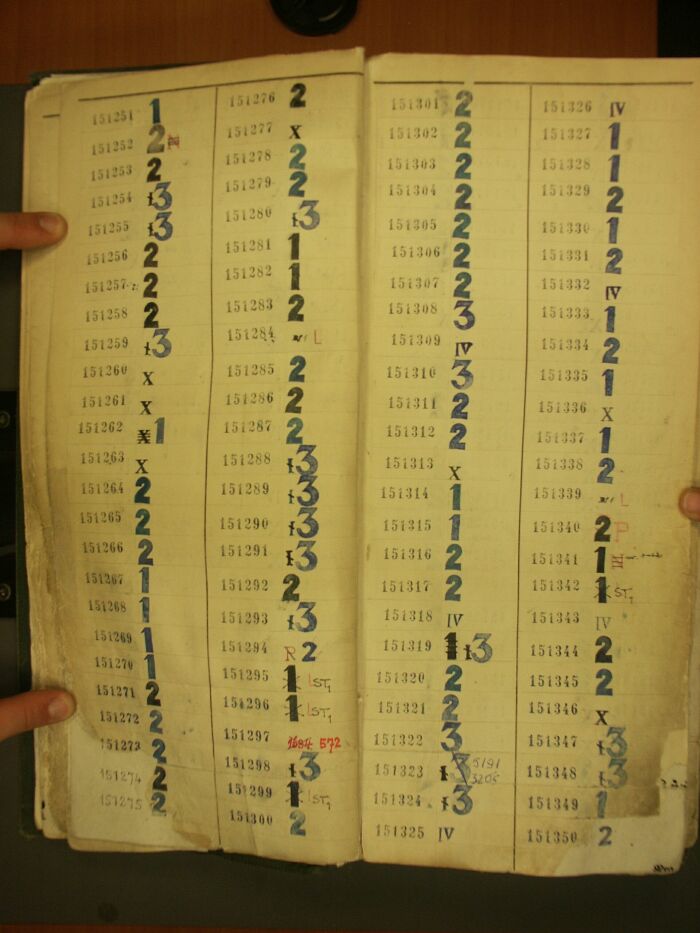 151251 1
151252 2 N
151253 2
151254 ɫ3
151255 ɫ3
151256 2
151257 2
151258 2
151259 ɫ3
151260 X
151261 X
151262 1
151263 X
151264 2
151265 2
151266 2
151267 1
151268 1
151269 1
151270 1
151271 2
151272 2
151273 2
151274 2
151275 2
151276 2
151277 X
151278 2
151279 2
151280 ɫ3
151281 1
151282 1
151283 2
151284 L
151285 2
151286 2
151287 2
151288 ɫ3
151289 ɫ3
151290 ɫ3
151291 ɫ3
151292 2
151293 ɫ3
151294 R 2
151295 1 ST1
151296 1 ST1
151297 1684 572
151298 ɫ3
151299 1 ST1
151300 2
151301 2
151302 2
151303 2
151304 2
151305 2
151306 2
151307 2
151308 3
151309 IV
151310 3
151311 2
151312 2
151313 X
151314 1
151315 1
151316 2
151317 2
151318 IV
151319 1 ɫ3
151320 2
151321 2
151322 3
151323 ɫ3 5191
3205
151324 ɫ3
151325 IV
151326 IV
151327 1
151328 1
151329 2
151330 1
151331 2
151332 IV
151333 1
151334 2
151335 1
151336 X
151337 1
151338 2
151339 L
151340 2 P
151341 1 N
151342 1 ST1
151343 IV
151344 2
151345 2
151346 X
151347 ɫ3
151348 ɫ3
151349 1
151350 2